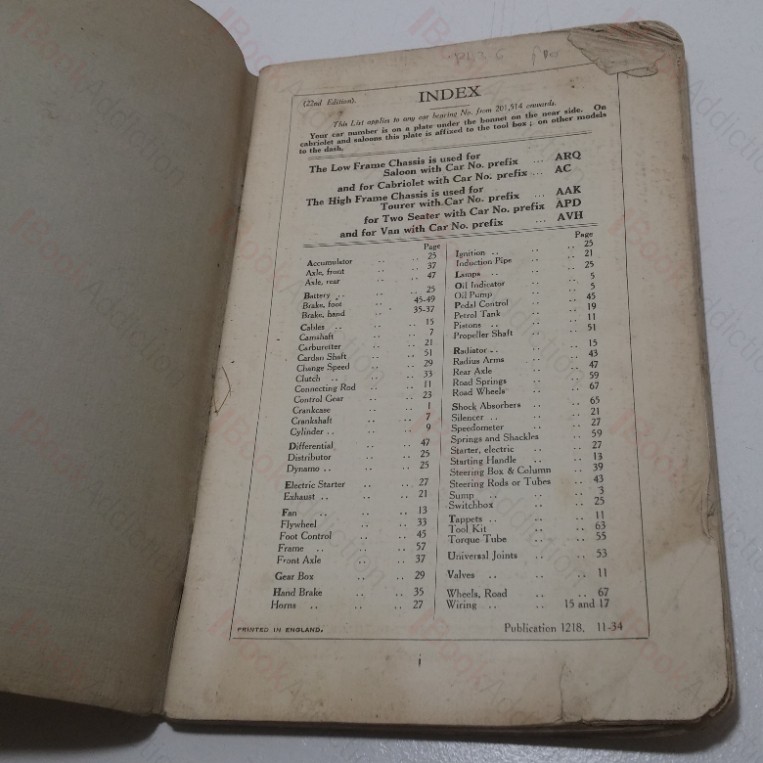 (22nd Edition).
INDEX
This List applies to any car bearing No. from 201,514 onwards.
Your car number is on a plate under the bonnet on the near side. On
cabriolet and saloons this plate is affixed to the tool box ; on other models
to the dash.
The Low Frame Chassis is used for
Saloon with Car No. prefix ... ARQ
and for Cabriolet with Car No. prefix ... AC
The High Frame Chassis is used for
Tourer with Car No. prefix ... AAK
for Two Seater with Car No. prefix APD
and for Van with Car No. prefix ... AVH
Page
Accumulator .. .. 25
Axle, front .. .. 37
Axle, rear .. .. 47
Battery .. .. .. 25
Brake, foot .. 45-49
Brake, hand .. 35-37
Cables .. .. .. 15
Camshaft .. .. 7
Carburetter .. .. 21
Cardan Shaft .. .. 51
Change Speed .. .. 29
Clutch .. .. .. 33
Connecting Rod .. .. 11
Control Gear .. .. 23
Crankcase .. .. 1
Crankshaft .. .. 7
Cylinder .. .. .. 9
Differential .. .. 47
Distributor .. .. 25
Dynamo .. .. .. 25
Electric Starter .. .. 27
Exhaust .. .. .. 21
Fan .. .. .. 13
Flywheel .. .. 33
Foot Control .. .. 45
Frame .. .. .. 57
Front Axle .. .. 37
Gear Box .. .. 29
Hand Brake .. .. 35
Horns .. .. .. 27
Page
Ignition .. .. .. 25
Induction Pipe .. .. 21
Lamps .. .. .. 25
Oil Indicator .. .. 5
Oil Pump .. .. 5
Pedal Control .. .. 45
Petrol Tank .. .. 19
Pistons .. .. .. 11
Propeller Shaft .. .. 51
Radiator .. .. .. 15
Radius Arms .. .. 43
Rear Axle .. .. 47
Road Springs .. .. 59
Road Wheels .. .. 67
Shock Absorbers .. .. 65
Silencer .. .. .. 21
Speedometer .. .. 27
Springs and Shackles .. 59
Starter, electric .. .. 27
Starting Handle .. .. 13
Steering Box & Column .. 39
Steering Rods or Tubes .. 43
Sump .. .. .. 3
Switchbox .. .. 25
Tappets .. .. .. 11
Tool Kit .. .. 63
Torque Tube .. .. 55
Universal Joints .. .. 53
Valves .. .. .. 11
Wheels, Road .. .. 67
Wiring .. .. 15 and 17
PRINTED IN ENGLAND.
Publication 1218. 11-34
i
Book Addiction